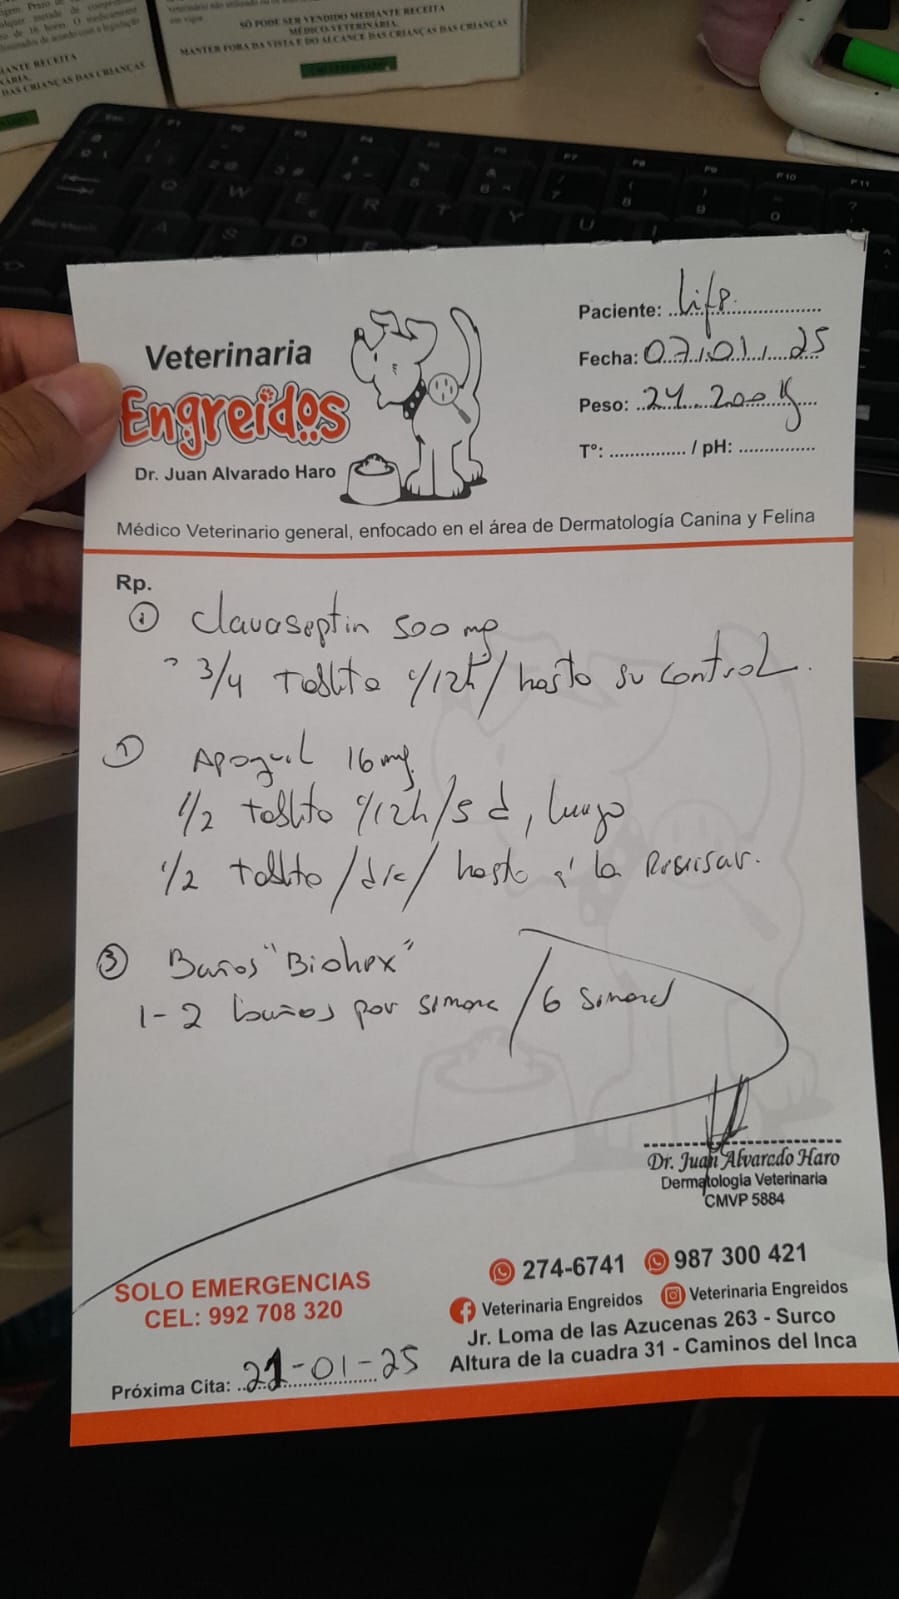 SÓ PODE SER VENDIDO MEDIANTE RECEITA
MÉDICO-VETERINÁRIA.
MANTER FORA DA VISTA E DO ALCANCE DAS CRIANÇAS
DAS CRIANÇAS
Veterinaria
Engreídos
Dr. Juan Alvarado Haro
Paciente: Life
Fecha: 07/01/25
Peso: 24.200 Kg
T°: ............... / pH: ...............
Médico Veterinario general, enfocado en el área de Dermatología Canina y Felina
Rp.
① Clavaseptin 500 mg
3/4 Tablita c/12h/ hasta su control.
① Apoquel 16mg.
1/2 Tablita c/12h/5 d, luego
1/2 Tablita /día/ hasta q' la revisar.
③ Baños "Biohex"
1-2 baños por semana /6 semanas
Dr. Juan Alvarado Haro
Dermatología Veterinaria
CMVP 5884
SOLO EMERGENCIAS
CEL: 992 708 320
274-6741 987 300 421
Veterinaria Engreidos Veterinaria Engreidos
Jr. Loma de las Azucenas 263 - Surco
Altura de la cuadra 31 - Caminos del Inca
Próxima Cita: 21-01-25